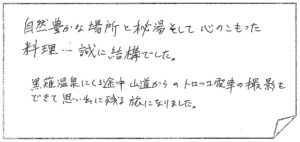 自然豊かな場所と秘湯そして心のこもった
料理…誠に結構でした。
黒薙温泉にくる途中山道からのトロッコ電車の撮影も
できて思い出に残る旅になりました。